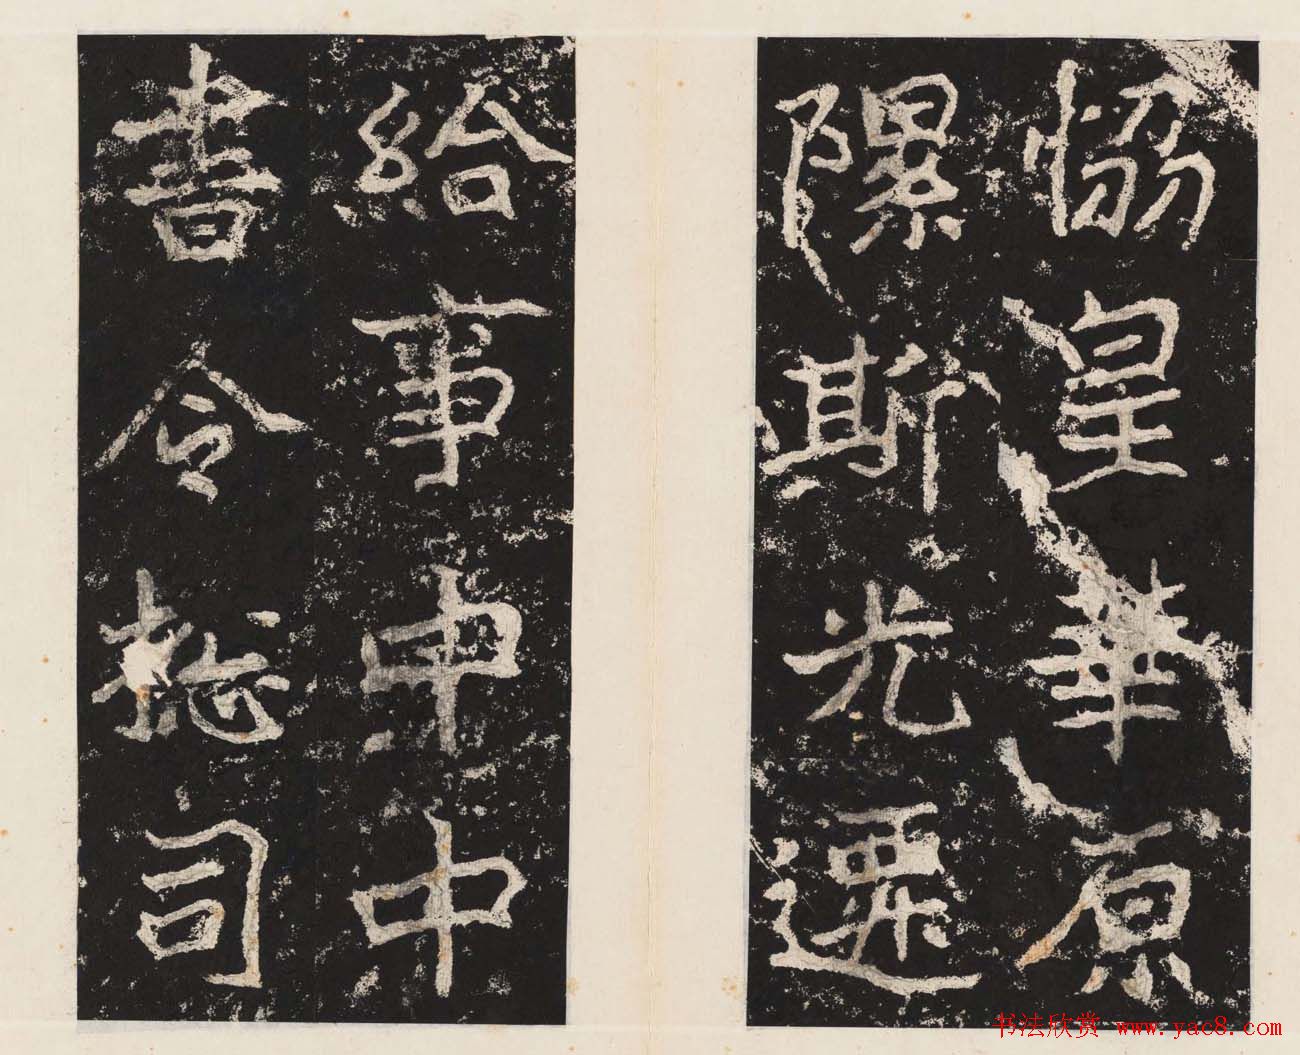 恊皇華原
隰斯光遷
給事中中
書令揔司
书法欣赏 www.yac8.com